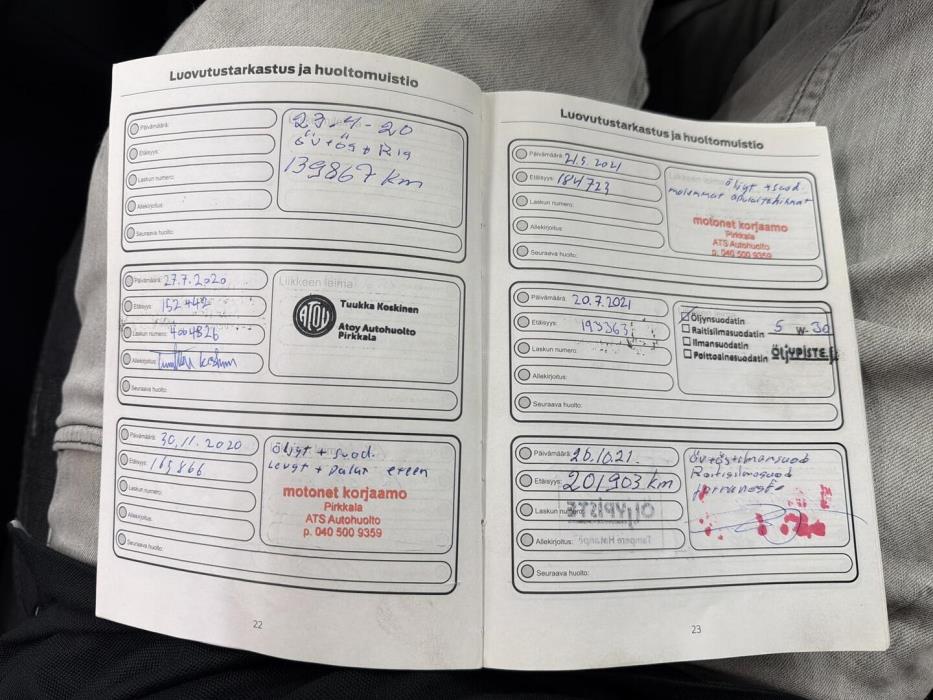 Luovutustarkastus ja huoltomuistio
Päivämäärä:
Etäisyys:
Laskun numero:
Allekirjoitus:
Seuraava huolto:
23.4-20
öv+ös+Ris
139867 km
Päivämäärä: 27.7.2020
Etäisyys: 152442
Laskun numero: 4004826
Allekirjoitus:
Seuraava huolto:
Liikkeen leima:
ATOY
Tuukka Koskinen
Atoy Autohuolto
Pirkkala
Päivämäärä: 30.11.2020
Etäisyys: 165866
Laskun numero:
Allekirjoitus:
Seuraava huolto:
Öljyt + suod.
Levyt + palat eteen
motonet korjaamo
Pirkkala
ATS Autohuolto
p. 040 500 9359
22
Luovutustarkastus ja huoltomuistio
Päivämäärä: 21.5.2021
Etäisyys: 184723
Laskun numero:
Allekirjoitus:
Seuraava huolto:
Öljyt + suod.
molemmat apulaitehihnat
motonet korjaamo
Pirkkala
ATS Autohuolto
p. 040 500 9359
Päivämäärä: 20.7.2021
Etäisyys: 193363
Laskun numero:
Allekirjoitus:
Seuraava huolto:
Öljynsuodatin 5 W-30
Raitisilmasuodatin
Ilmansuodatin
Polttoainesuodatin ÖLJYPISTE.fi
Päivämäärä: 26.10.21.
Etäisyys: 201903 km
Laskun numero:
Allekirjoitus:
Seuraava huolto:
öv+ös+ilmansuod
Raitisilmasuod
jarruneste
ÖLJYPISTE
23